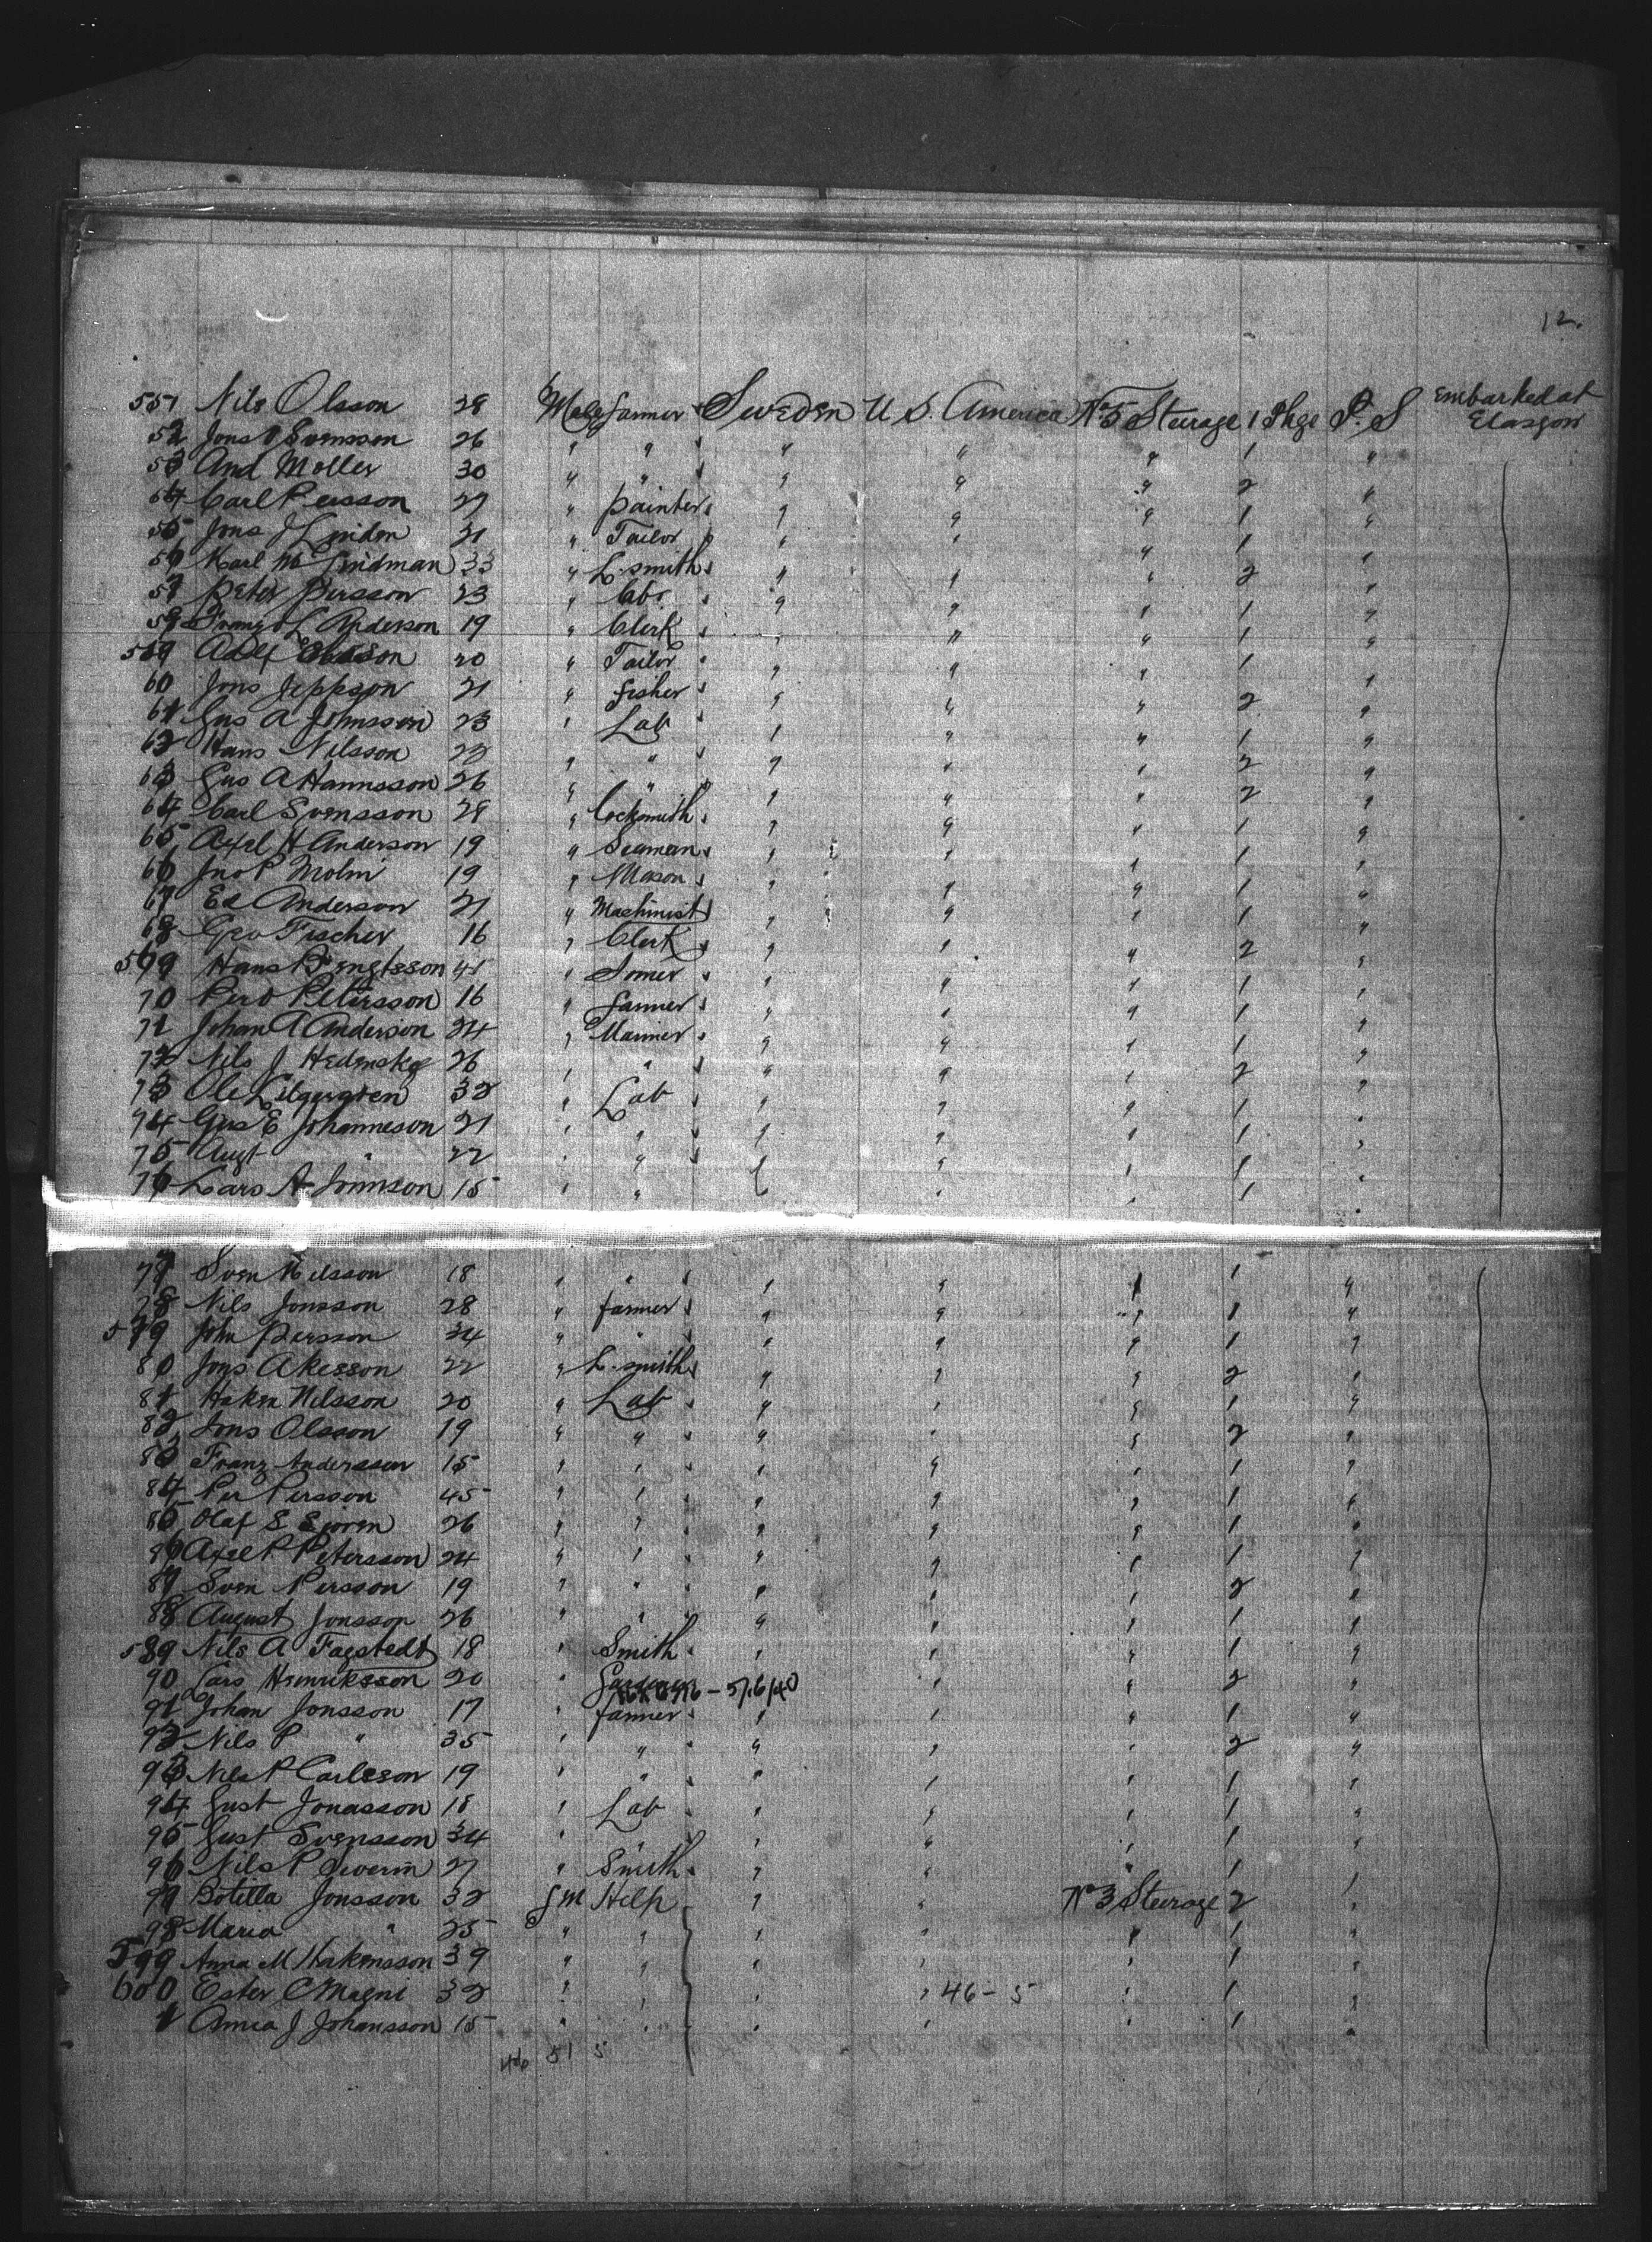 12.
551 Nils Olsson 28 Male farmer Sweden U S. America No 5 Steerage 1 Pkge P. S Embarked at Glasgow
52 Jons O Svensson 26 " " " " " 1 "
53 And Moller 30 " " " " " 2 "
54 Carl Persson 27 " painter " " " 1 "
55 Jons J Linden 21 " Tailor " " " 1 "
56 Karl M Lindman 33 " L. smith " " " 2 "
57 Peter Persson 23 " " " " 1 "
58 Franz L Anderson 19 " Clerk " " " 1 "
559 Adlf 20 " Tailor " " " 1 "
60 Jons Jeppson 21 " fisher " " " 2 "
61 Gus A Johnsson 23 " Lab " " " 1 "
62 Hans Nilsson " " " " " 2 "
63 Gus A Hannsson 26 " " " " " 2 "
64 Carl Svensson 28 " Locksmith " " " 1 "
65 Axel H Anderson 19 " Seaman " " " 1 "
66 Jno P Molin 19 " Mason " " " 1 "
67 Ed Anderson 21 " Machinist " " " 1 "
68 Geo Fischer 16 " Clerk " " " 2 "
569 Hans Bengtsson " " " " 1 "
70 Per O Petersson 16 " farmer " " " 1 "
71 Johan A Anderson 24 " " " " 1 "
72 Nils J Hedenskog 26 " " " " " 2 "
73 Ole Lilgergren 32 " Lab " " " 1 "
74 Gus E Johanneson 21 " " " " " 1 "
75 Augt " 22 " " " " " 1 "
76 Lars A Jonnson 15 " " " " " 1 "
77 Sven Nilsson 18 " " " " " 1 "
78 Nils Jonsson 28 " farmer " " " 1 "
579 John Persson 34 " " " " " 1 "
80 Jons Akesson 22 " L. smith " " " 2 "
81 Haken Nilsson 20 " Lab " " " 1 "
82 Jons Olsson 19 " " " " " 2 "
83 Franz Andersson 15 " " " " " 1 "
84 Per Persson 45 " " " " " 1 "
85 Olaf S Sjoren 26 " " " " " 1 "
86 Axel P Petersson 24 " " " " " 1 "
87 Sven Persson 19 " " " " " 2 "
88 August Jonsson 26 " " " " " 1 "
589 Nils A Fagstedt 18 " Smith " " " 1 "
90 Lars Henriksson 20 " " " 2 "
91 Johan Jonsson 17 " farmer " " " 1 "
92 Nils P " 35 " " " " " 2 "
93 Nils P Carlsson 19 " " " " " 1 "
94 Gust Jonasson 18 " Lab " " " 1 "
95 Gust Svensson 34 " " " " " 1 "
96 Nils P Severin 27 " Smith " " " 1 "
97 Botilla Jonsson 32 f m Help " " No 3 Steerage 2 "
98 Maria " 25 " " " " " 1 "
599 Anna M Hakensson 39 " " " " " 1 "
600 Ester C Magni 32 " " " " 46 - 5 " 1 "
1 Anna J Johansson 15 " " " " " 1 "
46 51 5